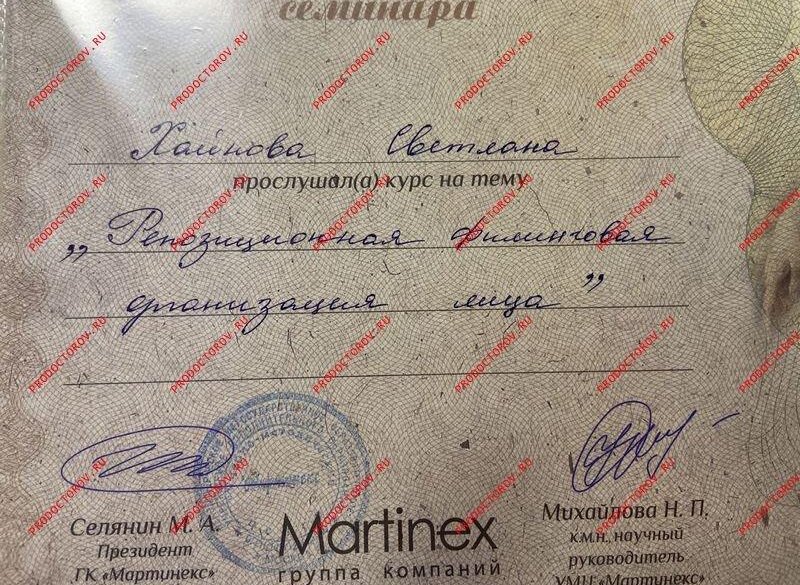 семинара
Хайнова Светлана
прослушал(а) курс на тему
„Репозиционная филинговая
организация лица”
Селянин М. А.
Президент
ГК «Мартинекс»
Martinex
группа компаний
Михайлова Н. П.
к.м.н. научный
руководитель
УМЦ «Мартинекс»
PRODOCTOROV.RU